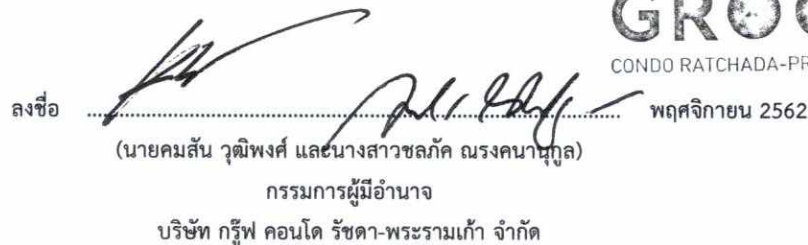 CONDO RATCHADA-PR
ลงชื่อ ............ พฤศจิกายน 2562
(นายคมสัน วุฒิพงศ์ และนางสาวชลภัค ณรงคนานุกูล)
กรรมการผู้มีอำนาจ
บริษัท กรู๊ฟ คอนโด รัชดา-พระรามเก้า จำกัด